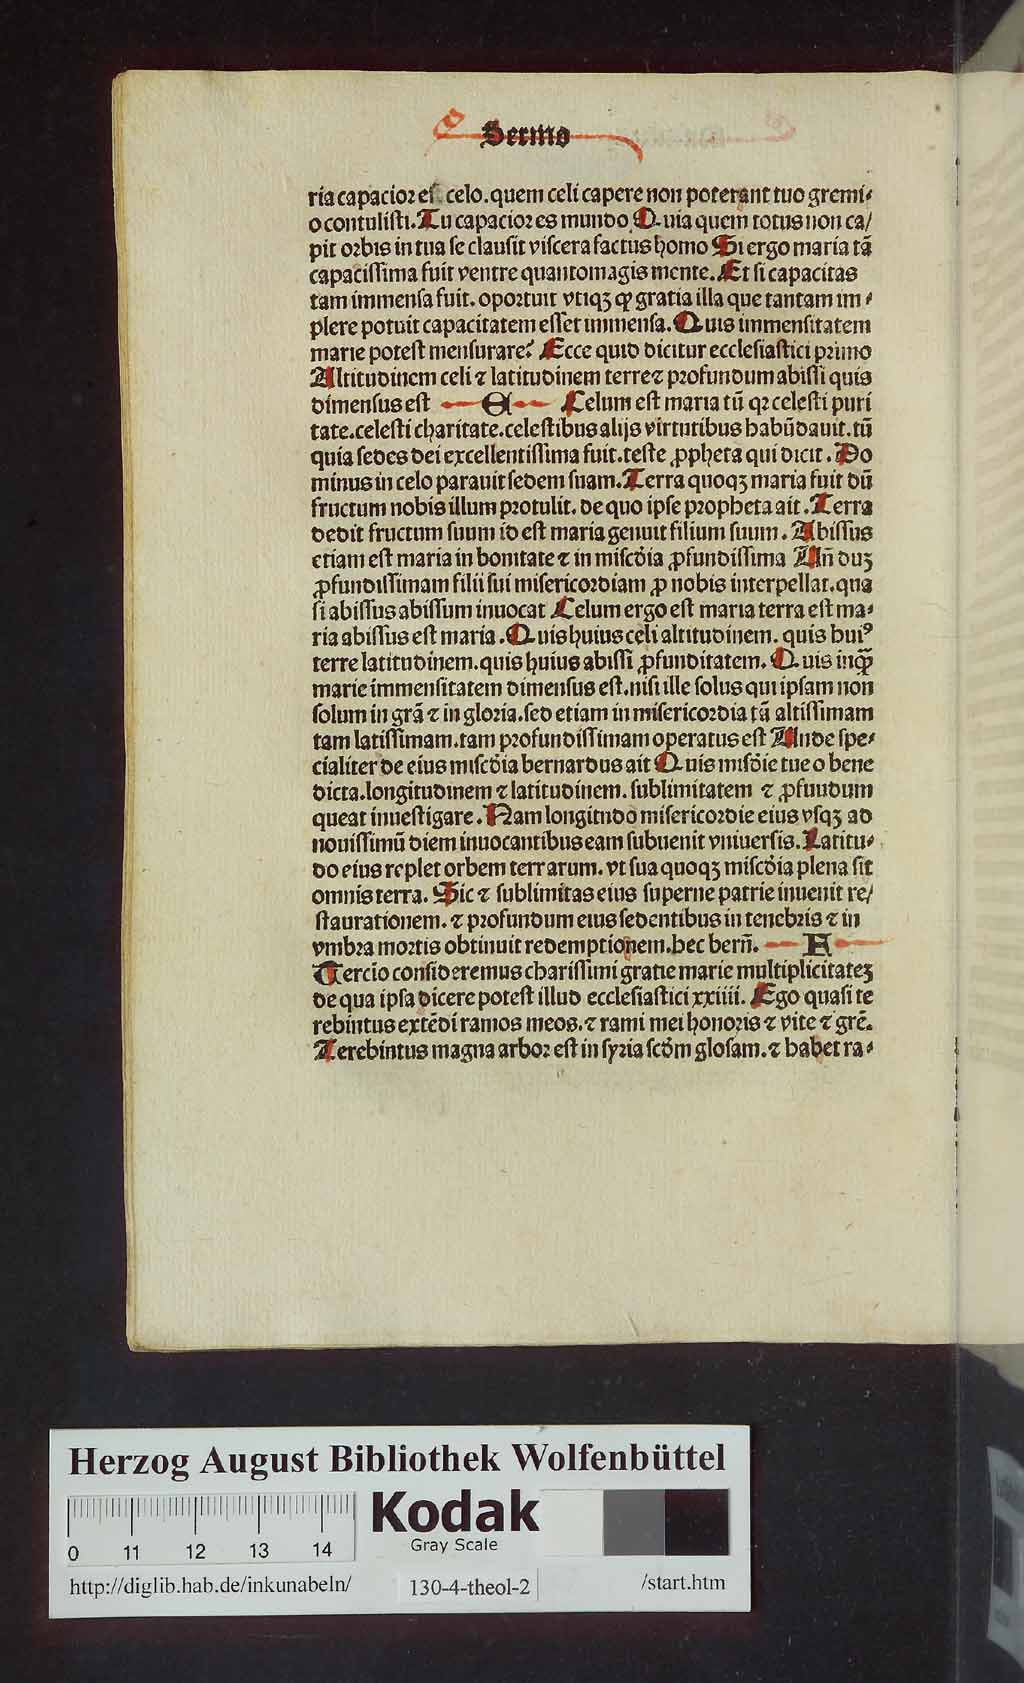 Sermo
ria capacior es celo. quem celi capere non poterant tuo gremi⸗
o contulisti. Tu capacior es mundo Quia quem totus non ca/
pit orbis in tua se clausit viscera factus homo Si ergo maria tã
capacissima fuit ventre quantomagis mente. Et si capacitas
tam immensa fuit. oportuit vtiqꝫ ꝙ gratia illa que tantam im⸗
plere potuit capacitatem esset immensa. Quis immensitatem
marie potest mensurare? Ecce quid dicitur ecclesiastici primo
Altitudinem celi ⁊ latitudinem terre ⁊ profundum abissi quis
dimensus est Celum est maria tũ qꝛ celesti puri
tate. celesti charitate. celestibus alijs virtutibus habũdauit. tũ
quia sedes dei excellentissima fuit. teste ꝓpheta qui dicit. Do
minus in celo parauit sedem suam. Terra quoqꝫ maria fuit dũ
fructum nobis illum protulit. de quo ipse propheta ait. Terra
dedit fructum suum id est maria genuit filium suum. Abissus
etiam est maria in bonitate ⁊ in miscďia ꝓfundissima Vñ duꝫ
ꝓfundissimam filii sui misericordiam ꝓ nobis interpellat. qua
si abissus abissum inuocat Celum ergo est maria terra est ma⸗
ria abissus est maria. Quis huius celi altitudinem. quis huiꝰ
terre latitudinem. quis huius abissi ꝓfunditatem. Quis inqꝫ̃
marie immensitatem dimensus est. nisi ille solus qui ipsam non
solum in grã ⁊ in gloria. sed etiam in misericordia tã altissimam
tam latissimam. tam profundissimam operatus est Vnde spe⸗
cialiter de eius miscďia bernardus ait Quis misďie tue o bene
dicta. longitudinem ⁊ latitudinem. sublimitatem ⁊ ꝓfundum
queat inuestigare. Nam longitudo misericordie eius vsqꝫ ad
nouissimũ diem inuocantibus eam subuenit vniuersis. Latitu⸗
do eius replet orbem terrarum. vt sua quoqꝫ miscďia plena sit
omnis terra. Sic ⁊ sublimitas eius superne patrie inuenit re/
staurationem. ⁊ profundum eius sedentibus in tenebris ⁊ in
vmbra mortis obtinuit redemptionem. hec berñ. F
Tercio consideremus charissimi gratie marie multiplicitateꝫ
de qua ipsa dicere potest illud ecclesiastici xxiiii. Ego quasi te
rebintus extẽdi ramos meos. ⁊ rami mei honoris ⁊ vite ⁊ grẽ.
Terebintus magna arbor est in syria scďm glosam. ⁊ habet ra⸗
Herzog August Bibliothek Wolfenbüttel
Kodak
Gray Scale
0 11 12 13 14
http://diglib.hab.de/inkunabeln/ 130-4-theol-2 /start.htm